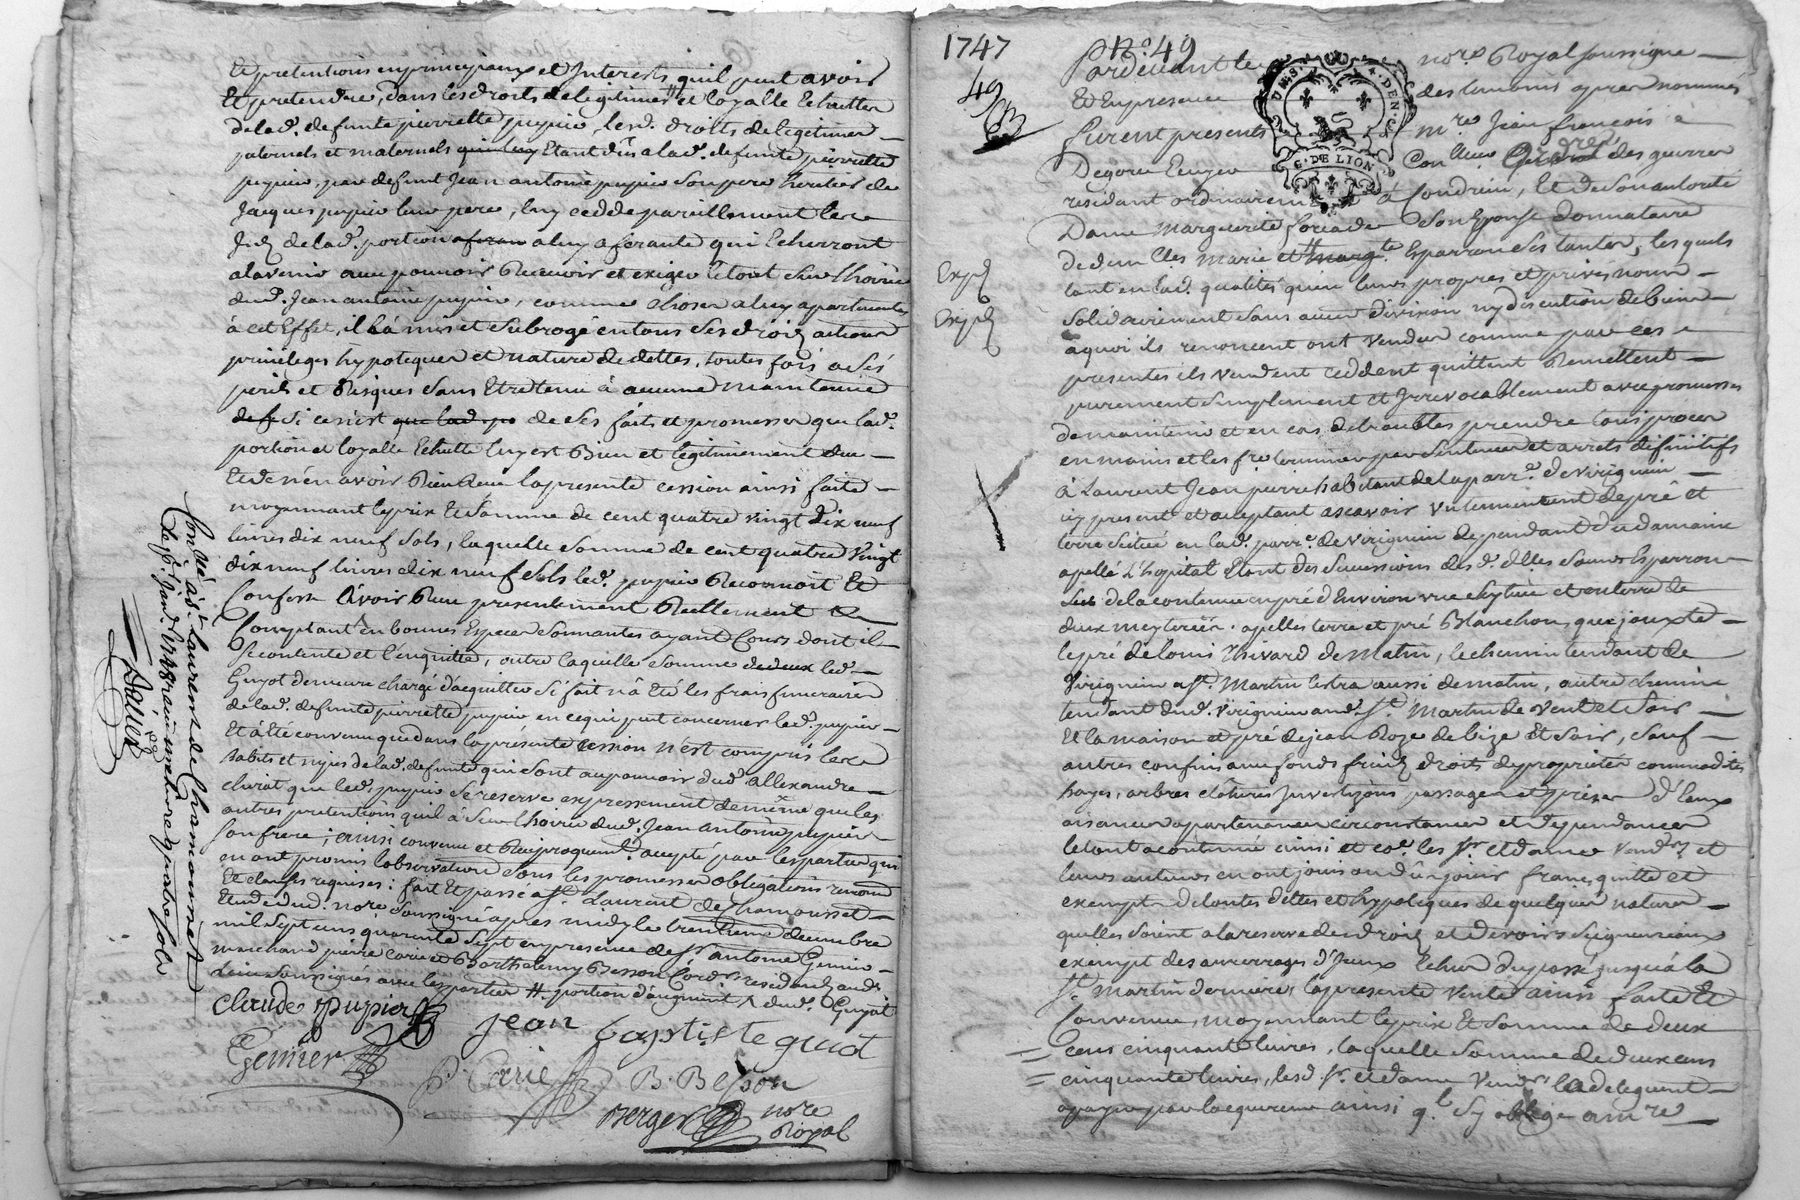 Et pretentions en principaux et Interests quil peut avoir
Et pretendre, dans les droits de legitimes # et loyalle Echutte
de lad. defunte pierrette pupier, lesd. droits de legitimes
paternels et maternels Etant dûs a lad. defunte pierrette
pupier, par defunt Jean antoine pupier son pere heritier de
Jacques pupier leur pere, luy cedde pareillement les
de lad. portion a luy aferante qui Echerront
a lavenir avec pouvoir Recevoir et exiger le tout sur lhoirie
dud. Jean antoine pupier, comme choses a luy apartenantes
à cet Effet, il la mis et subrogé en tous ses droits actions
privileges hypoteques et nature de dettes, toutes fois a ses
perils et Risques sans Etre tenu à aucune maintenue
si ce n'est de ses faits et promesses que lad.
portion et loyalle Echutte luy est Bien et legitimement due
Et de n'en avoir Rien Reçu la presente cession ainsi faite
moyennant le prix Et somme de cent quatre vingt dix neuf
livres dix neuf sols, laquelle somme de cent quatre vingt
dix neuf livres dix neuf sols led. pupier Reconnoit Et
Confesse avoir Reçu presentement Reellement &
Comptant en bonnes Especes sonnantes ayant Cours dont il
se contente et l'enquitte, outre laquelle somme led.
Guyot demeure chargé d'acquitter si fait n'a été les frais funeraires
de lad. defunte pierrette pupier en ce qui peut concerner led. pupier
Et a Eté convenu que dans la présente cession n'est compris les
habits et nipes de lad. defunte qui sont au pouvoir dud. allexandre
clurat que led. pupier se reserve expressement de même que les
autres pretentions quil à sur lhoirie dud. Jean Antoine pupier
son frere; ainsi convenu et Reciproquement accepté par les parties qui
en ont promis l'observation sous les promesses obligations
Et clauses requises: fait Et passé a St. Laurent de Chamousset
Etude dud. nore. soussigné apres midy le trentieme decembre
mil sept cens quarante sept en presence de sr. antoine Genier
marchand pierre Carie et Barthelemy Besson Cord.rs residants aud.
lieu soussignés avec les parties # portion d'augment ^ dud. Guyot
claude pupier
Jean baptiste guiot
Genier
P. Carie
B. Besson
Berger nore
Royal
Con.lé à St. Laurent de Chamousset
1747
N.º 49
49
Pardevant le nore. Royal soussigné
Et En presence des temoins apres nommés
furent presents mre. Jean françois
des guerres
residant ordinairement à Condrieu, Et de son autorité
Dame Marguerite son Epouse donnataire
de dem.lles Marie et Esparron ses tantes, lesquels
tant en lad. qualité qu'en leurs propres et privés noms
solidairement sans aucune division ny discution de biens
a quoi ils renoncent ont vendu comme par ces
presentes ils vendent ceddent quittent Remettent
purement simplement et Irrevocablement avec promesses
de maintenir et en cas de troubles prendre tous proces
en mains et les fre. terminer par sentences et arrets définitifs
à Laurent Jean pierre habitant de la parr.e de Virignin
icy present et acceptant ascavoir un tenement de pré et
terre situé en lad. parr.e de Virignin dependant du domaine
apellé L'hopital Etant des successions desd. d.lles sœurs Esparron
de la contenue en pré d'Environ une et en terre de
deux meyterées. apellés terre et pré Blanchon, que jouxte
le pré de Louis Thivard de matin, le chemin tendant de
Virignin a St. Martin lestra aussi de matin, autre chemin
tendant dud. Virignin aud. St. Martin de vent et soir
Et la maison et pré de jean Roze de bize Et soir, sauf
autres confins avec fonds fruits droits de propriétés commodités
hayes, arbres clôtures Investizons passages et prises d'Eaux
aisances apartenances circonstances et dependances
le tout a contenue ainsi et co.e les sr. et dame vend.rs et
leurs auteurs en ont joui ou dû jouir franc, quitte et
exempt de toutes dettes et hypoteques de quelques natures
quelles soient a la reserve des droits et devoirs seigneuriaux
exempt des arrerages d'Iceux Echus du passé jusqu'a la
St. Martin derniere, la presente vente ainsi faite Et
Convenue, moyennant le prix Et somme de deux
cens cinquante livres, laquelle somme de deux cens
cinquante livres, lesd. sr. et dame vend.rs la deleguent
a payer par lacquereur ainsi q.l s'y oblige a mre
C. DE LION